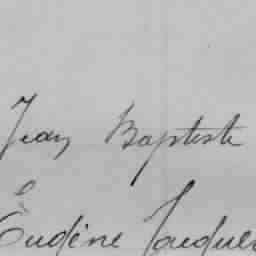 Jean Baptiste
Eugène Jacques